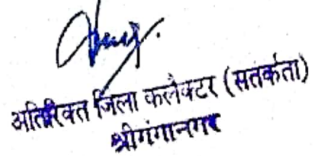 अतिरिक्त जिला कलेक्टर (सतर्कता)
श्रीगंगानगर